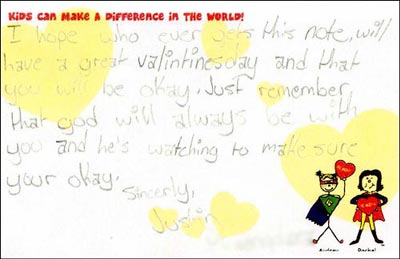 KIDS CAN MAKE A DIFFERENCE IN THE WORLD!
I hope who ever gets this note, will
have a great valintinesday and that
you will be okay. Just remember
that god will always be with
you and he's watching to make sure
your okay.
Sincerly,
Justin